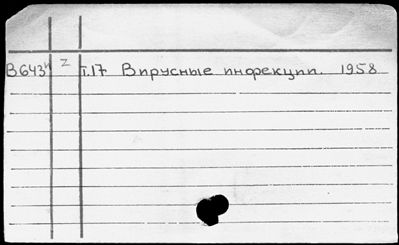 В643н Z Т.17 Вирусные инфекции. 1958